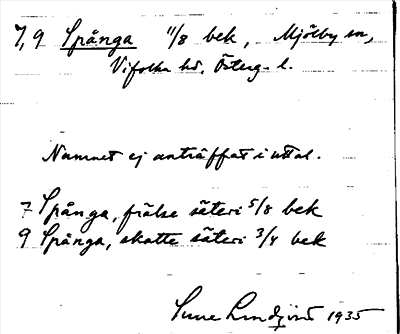 7,9 Spånga 11/8 bek, Mjölby sn,
Vifolka hd, Österg. l.
Namnet ej anträffat i uttal.
7 Spånga, frälse säteri 5/8 bek
9 Spånga, skatte säteri 3/4 bek
Sune Lindqvist 1935